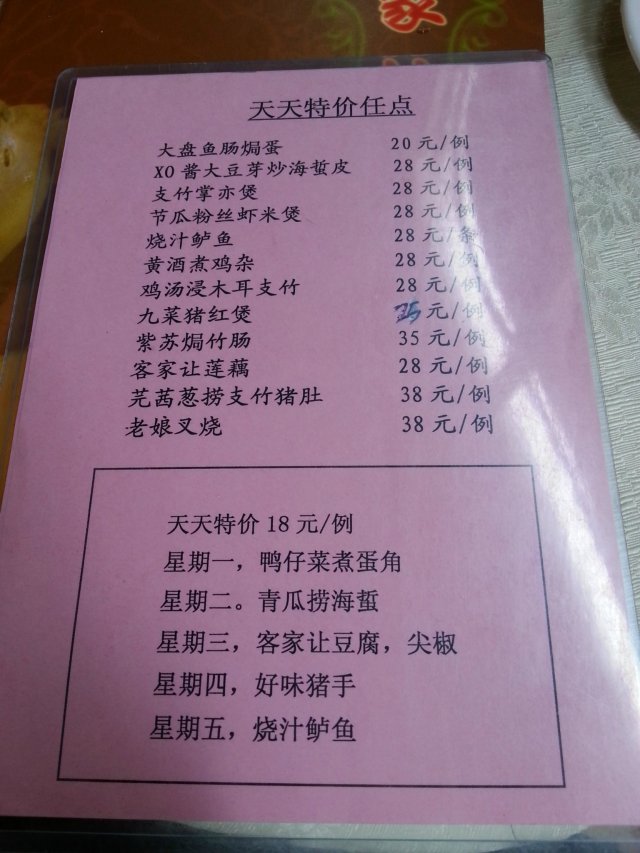 家
天天特价任点
大盘鱼肠焗蛋 20 元/例
XO 酱大豆芽炒海蜇皮 28 元/例
支竹掌亦煲 28 元/例
节瓜粉丝虾米煲 28 元/例
烧汁鲈鱼 28 元/条
黄酒煮鸡杂 28 元/例
鸡汤浸木耳支竹 28 元/例
九菜猪红煲 25 元/例
紫苏焗竹肠 35 元/例
客家让莲藕 28 元/例
芫茜葱捞支竹猪肚 38 元/例
老娘叉烧 38 元/例
天天特价 18 元/例
星期一，鸭仔菜煮蛋角
星期二。青瓜捞海蜇
星期三，客家让豆腐，尖椒
星期四，好味猪手
星期五，烧汁鲈鱼